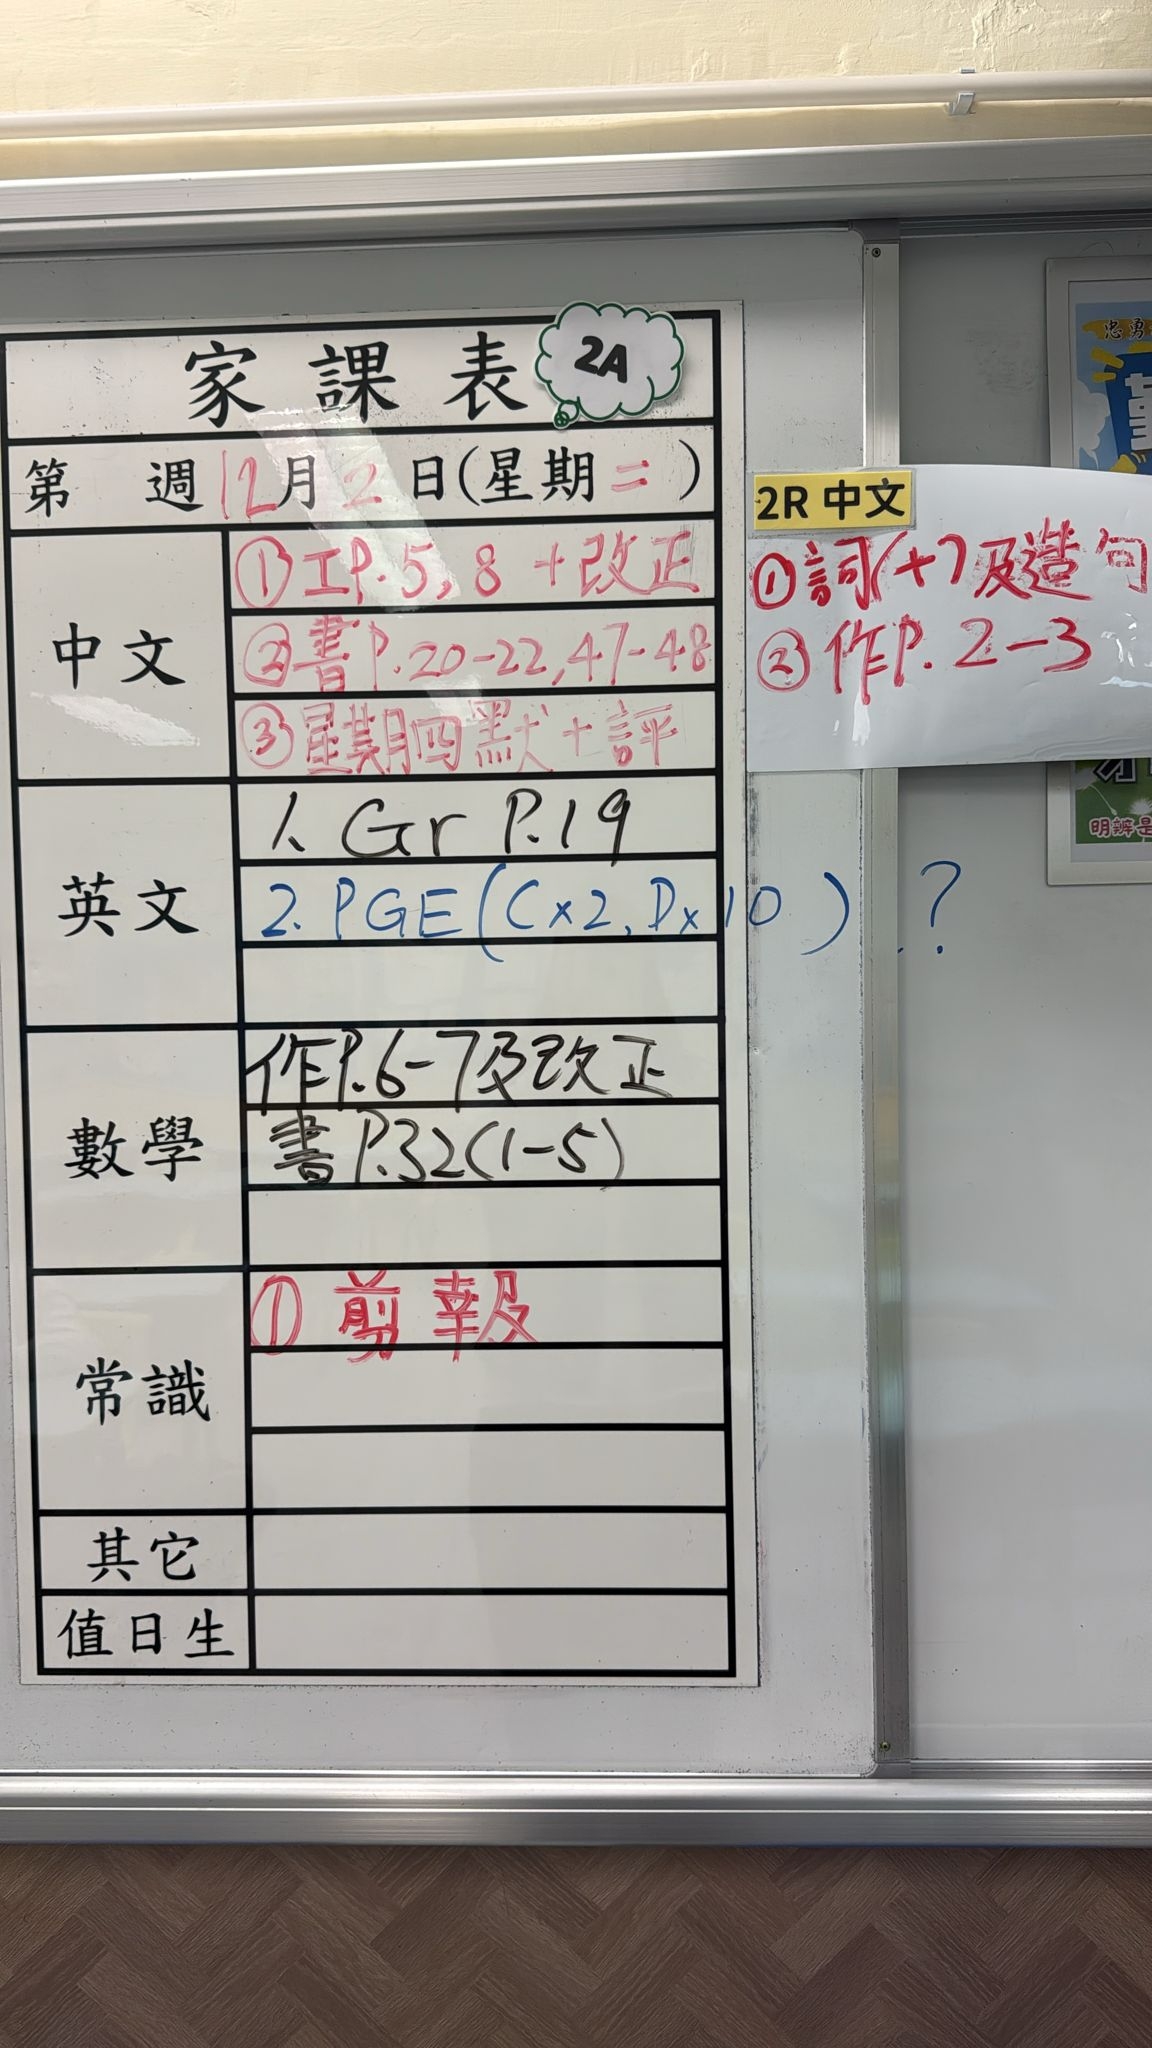 家課表 2A
第 週 12月2日(星期二)
中文
① 工P.5, 8 +改正
② 書P.20-22, 47-48
③ 星期四默+評
英文
1. Gr P.19
2. PGE (C×2, D×10) ?
數學
作P.6-7及改正
書P.32(1-5)
常識
① 剪報
其它
值日生
2R 中文
① 詞(+7及造句
② 作P. 2-3
忠勇
明辨是